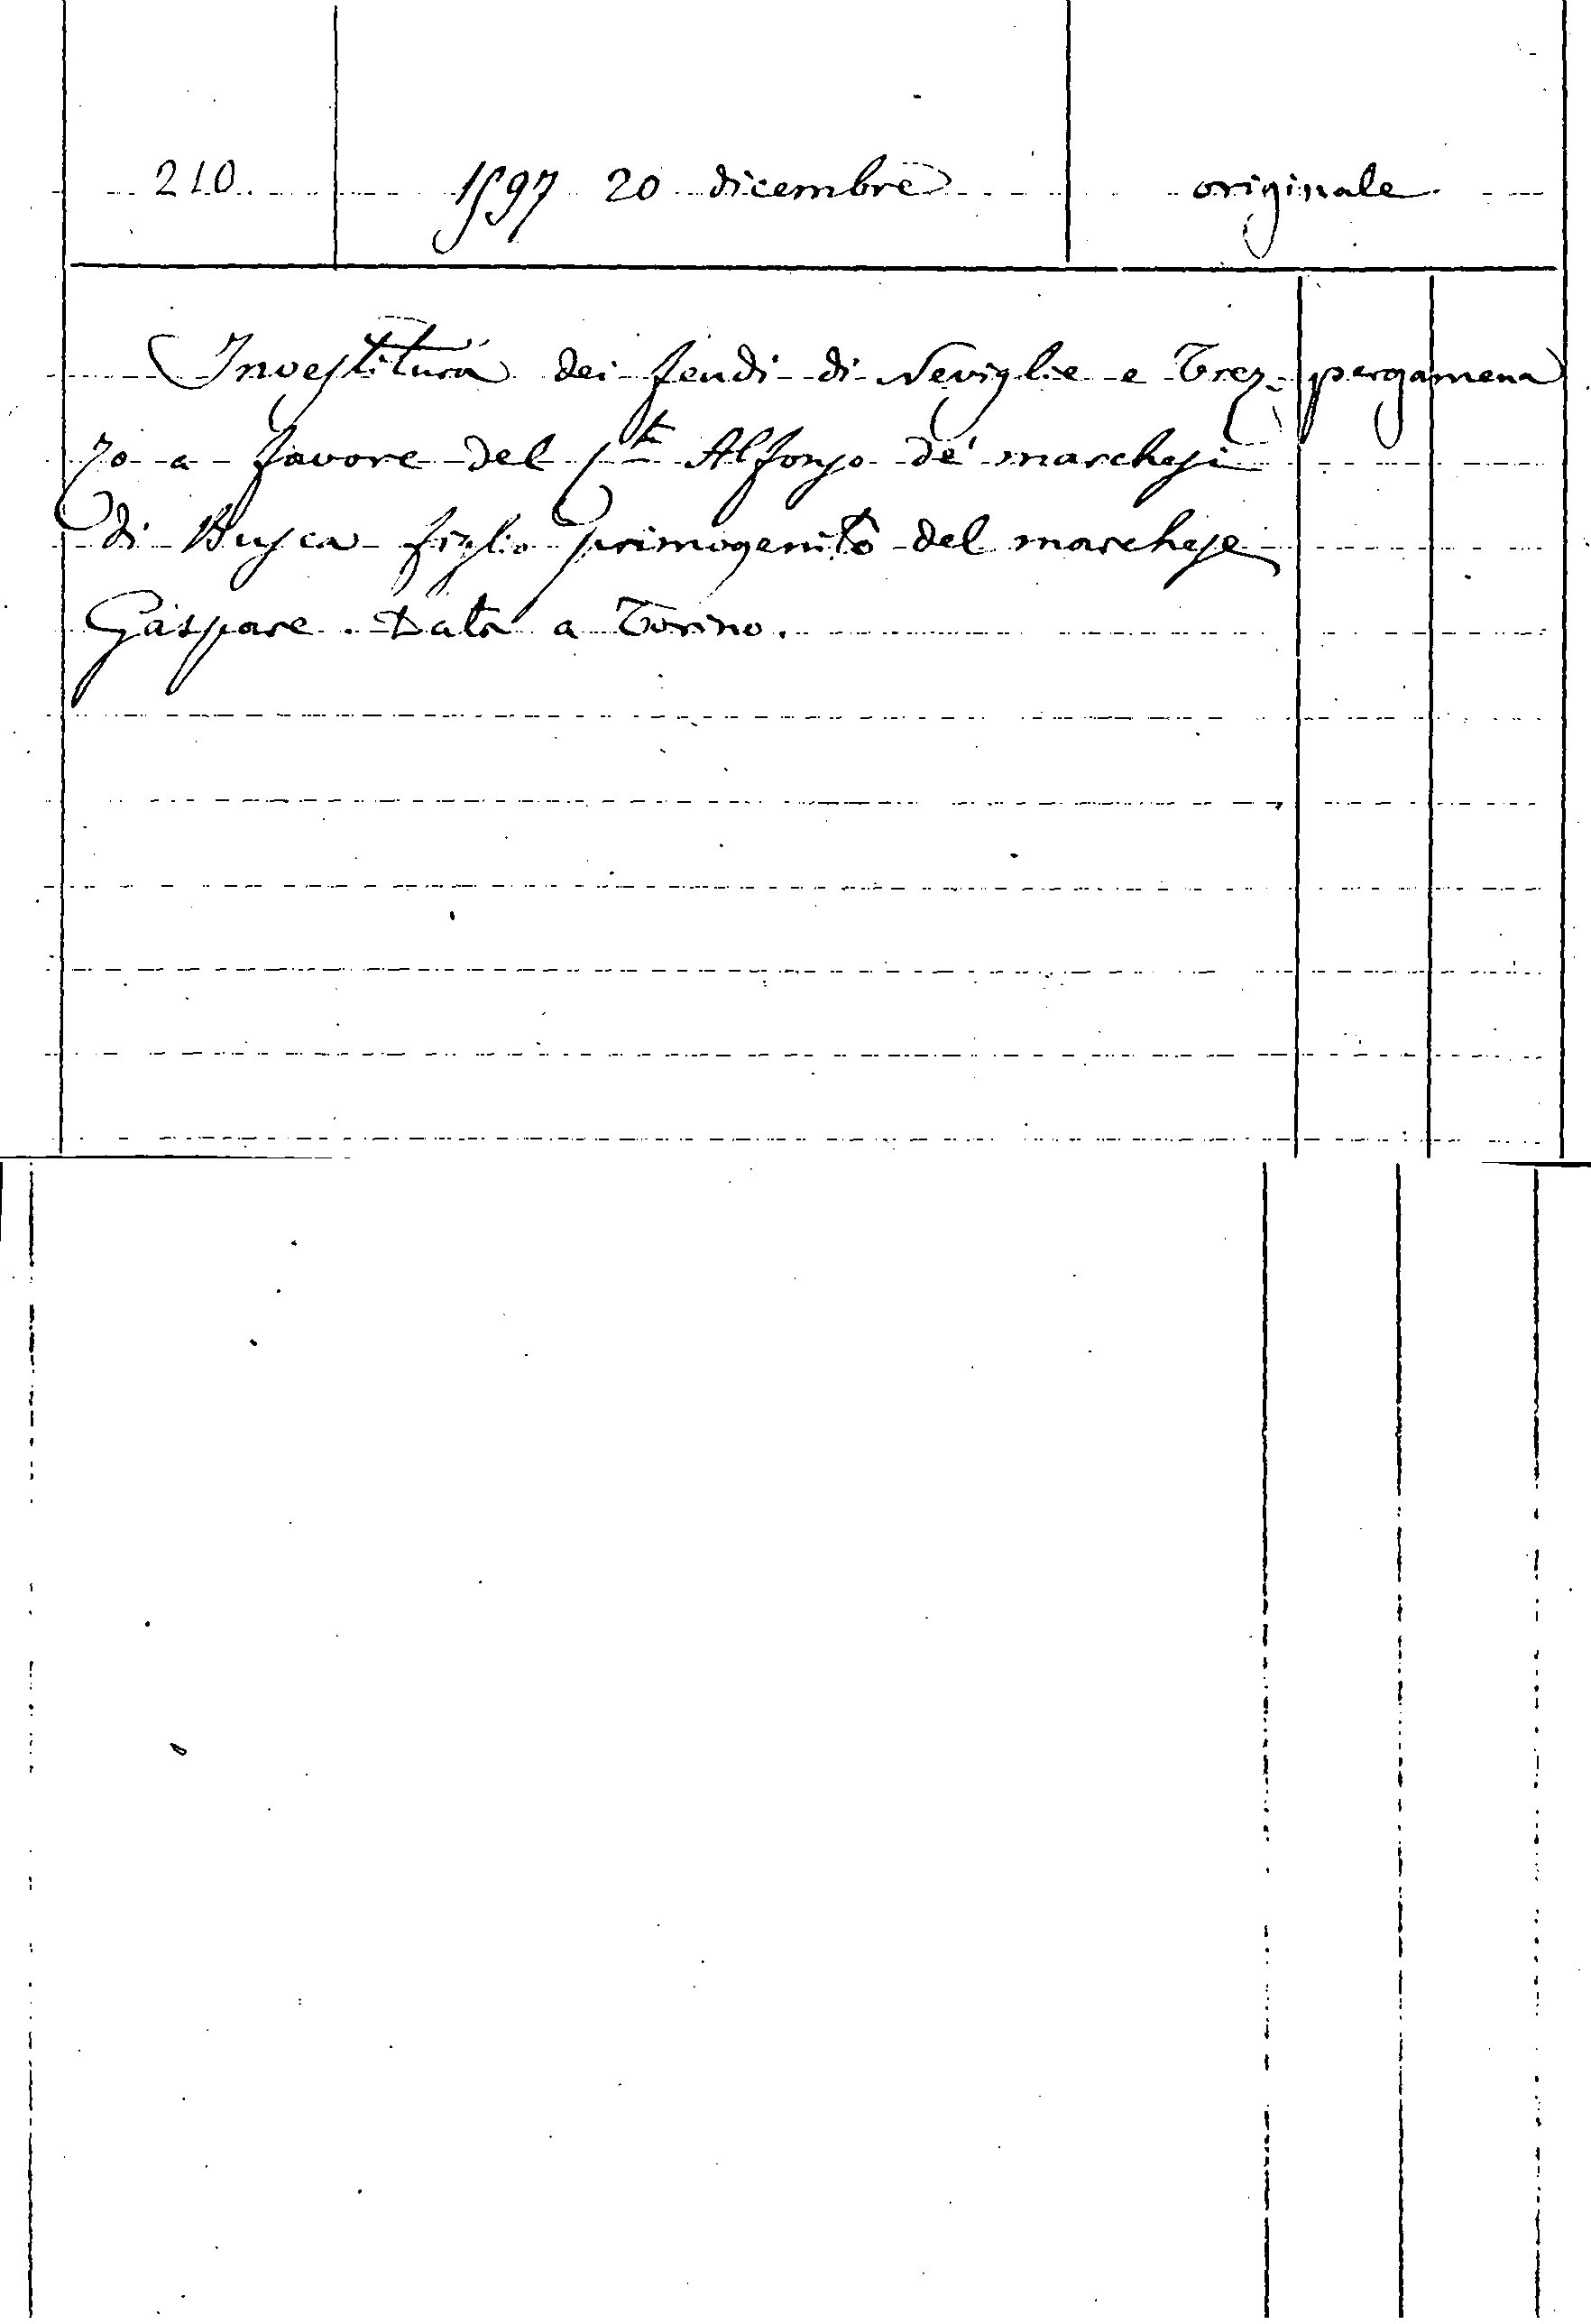 210. 1597 20 dicembre originale
Investitura dei feudi di Neviglie e Trez- pergamena
zo a favore del Cte Alfonso de' marchesi
di Busca figlio primogenito del marchese
Gaspare. Data a Torino.